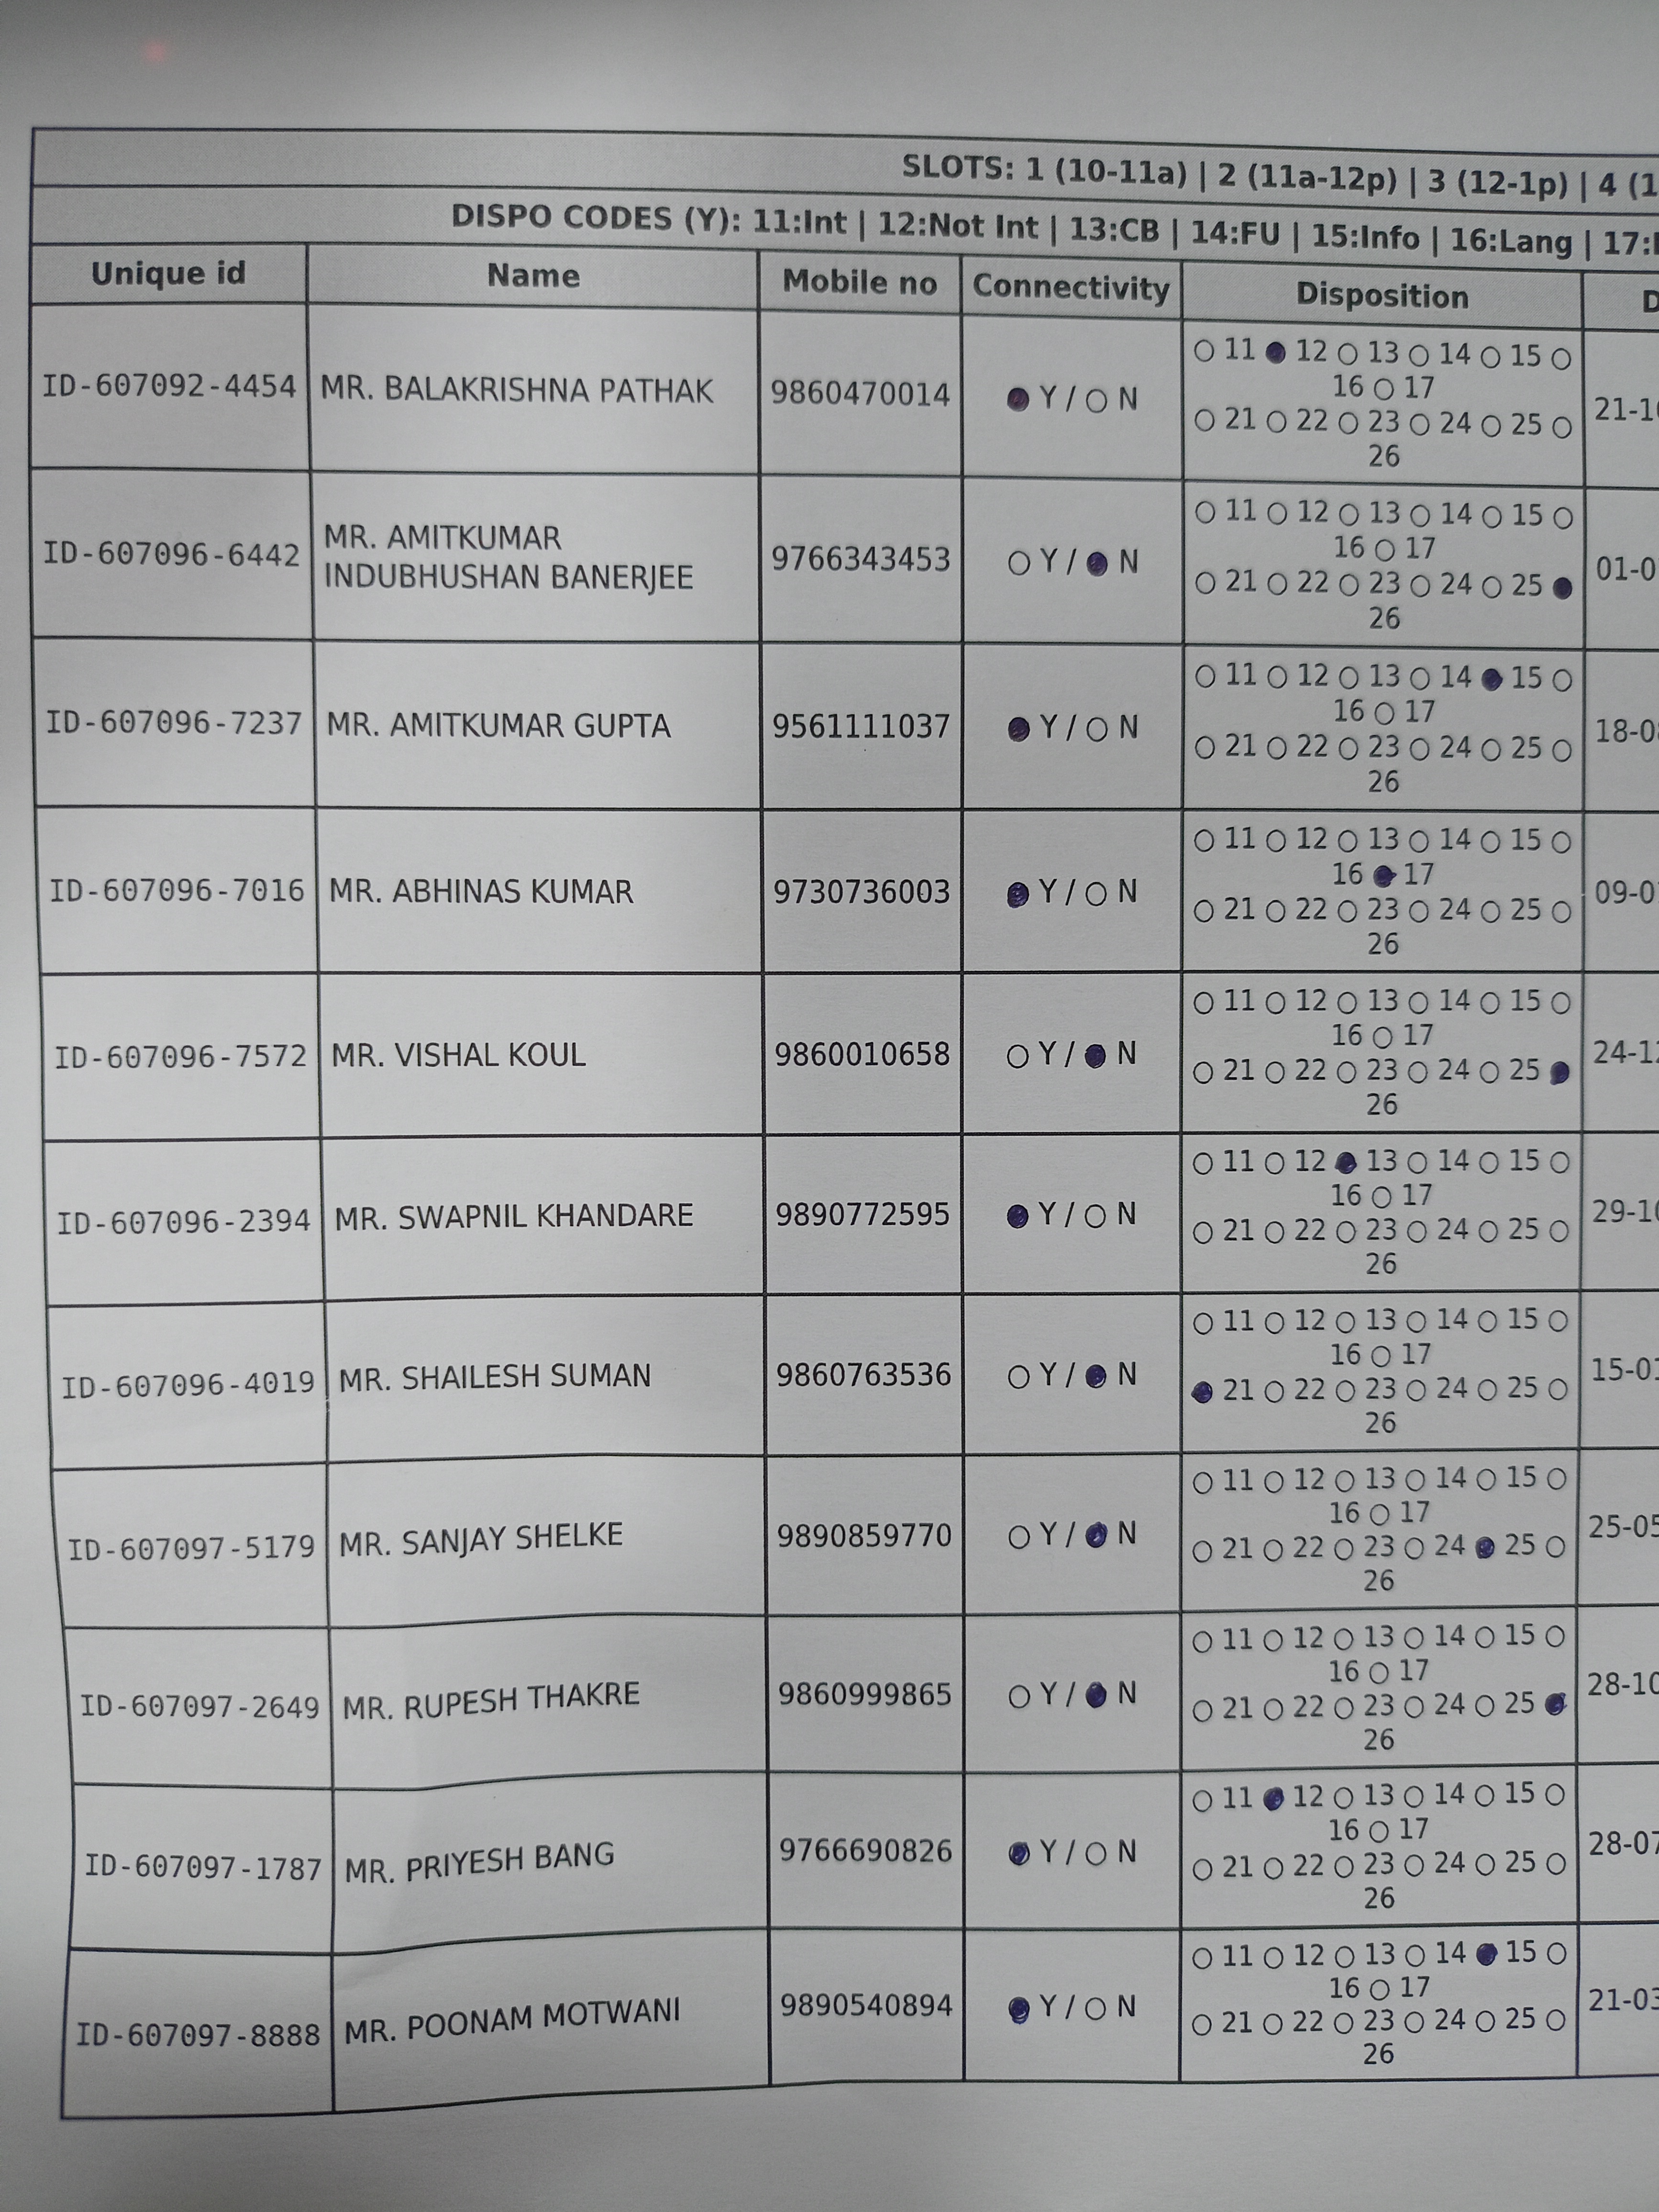 SLOTS: 1 (10-11a) | 2 (11a-12p) | 3 (12-1p) | 4 (1
DISPO CODES (Y): 11:Int | 12:Not Int | 13:CB | 14:FU | 15:Info | 16:Lang | 17:
Unique id Name Mobile no Connectivity Disposition D
ID-607092-4454 MR. BALAKRISHNA PATHAK 9860470014 ● Y / ○ N ○ 11 ● 12 ○ 13 ○ 14 ○ 15 ○
16 ○ 17
○ 21 ○ 22 ○ 23 ○ 24 ○ 25 ○
26
21-1
ID-607096-6442 MR. AMITKUMAR
INDUBHUSHAN BANERJEE 9766343453 ○ Y / ● N ○ 11 ○ 12 ○ 13 ○ 14 ○ 15 ○
16 ○ 17
○ 21 ○ 22 ○ 23 ○ 24 ○ 25 ●
26
01-0
ID-607096-7237 MR. AMITKUMAR GUPTA 9561111037 ● Y / ○ N ○ 11 ○ 12 ○ 13 ○ 14 ● 15 ○
16 ○ 17
○ 21 ○ 22 ○ 23 ○ 24 ○ 25 ○
26
18-0
ID-607096-7016 MR. ABHINAS KUMAR 9730736003 ● Y / ○ N ○ 11 ○ 12 ○ 13 ○ 14 ○ 15 ○
16 ● 17
○ 21 ○ 22 ○ 23 ○ 24 ○ 25 ○
26
09-0
ID-607096-7572 MR. VISHAL KOUL 9860010658 ○ Y / ● N ○ 11 ○ 12 ○ 13 ○ 14 ○ 15 ○
16 ○ 17
○ 21 ○ 22 ○ 23 ○ 24 ○ 25 ●
26
24-1
ID-607096-2394 MR. SWAPNIL KHANDARE 9890772595 ● Y / ○ N ○ 11 ○ 12 ● 13 ○ 14 ○ 15 ○
16 ○ 17
○ 21 ○ 22 ○ 23 ○ 24 ○ 25 ○
26
29-1
ID-607096-4019 MR. SHAILESH SUMAN 9860763536 ○ Y / ● N ○ 11 ○ 12 ○ 13 ○ 14 ○ 15 ○
16 ○ 17
● 21 ○ 22 ○ 23 ○ 24 ○ 25 ○
26
15-0
ID-607097-5179 MR. SANJAY SHELKE 9890859770 ○ Y / ● N ○ 11 ○ 12 ○ 13 ○ 14 ○ 15 ○
16 ○ 17
○ 21 ○ 22 ○ 23 ○ 24 ● 25 ○
26
25-05
ID-607097-2649 MR. RUPESH THAKRE 9860999865 ○ Y / ● N ○ 11 ○ 12 ○ 13 ○ 14 ○ 15 ○
16 ○ 17
○ 21 ○ 22 ○ 23 ○ 24 ○ 25 ●
26
28-10
ID-607097-1787 MR. PRIYESH BANG 9766690826 ● Y / ○ N ○ 11 ● 12 ○ 13 ○ 14 ○ 15 ○
16 ○ 17
○ 21 ○ 22 ○ 23 ○ 24 ○ 25 ○
26
28-07
ID-607097-8888 MR. POONAM MOTWANI 9890540894 ● Y / ○ N ○ 11 ○ 12 ○ 13 ○ 14 ● 15 ○
16 ○ 17
○ 21 ○ 22 ○ 23 ○ 24 ○ 25 ○
26
21-03